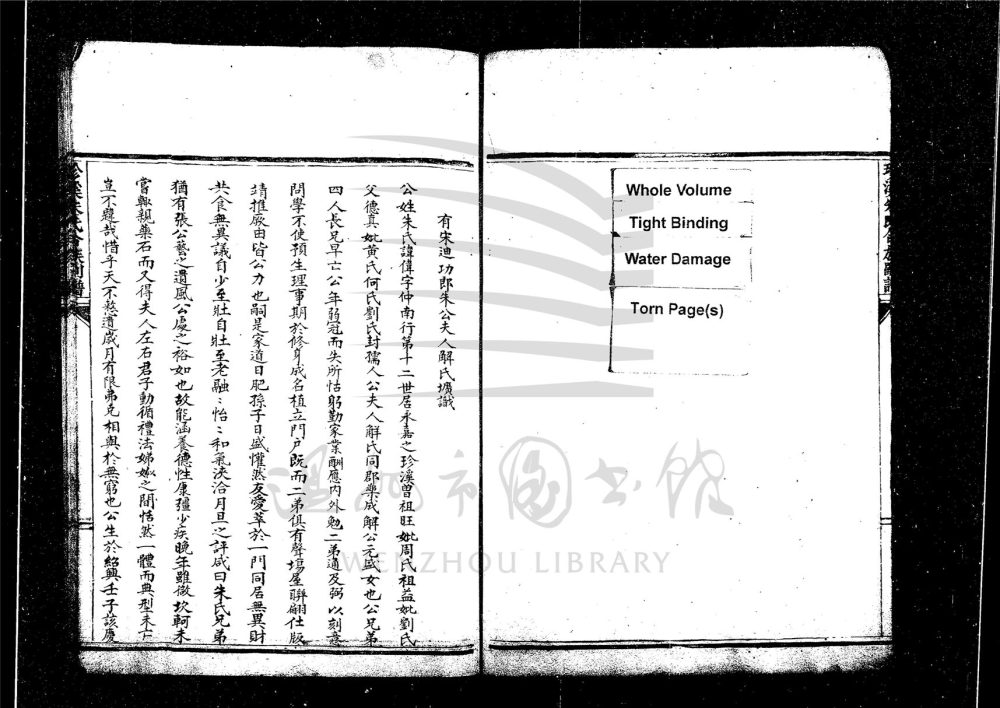 Whole Volume
Tight Binding
Water Damage
Torn Page(s)
有宋迪功郎朱公夫人解氏壙識
公姓朱氏諱偉字仲南行第十二世居永嘉之珍溪曾祖旺妣周氏祖益妣劉氏
父德真妣黄氏何氏劉氏封孺人公夫人解氏同郡樂成解公元盛女也公兄弟
四人長兄早亡公年弱冠而失所怙躬勤家業酬應内外勉二弟適及弼以刻意
問學不使預生理事期於修身成名植立門户既而二弟俱有聲塲屋聯翩仕版
靖推厥由皆公力也嗣是家道日肥孫子日盛懽然友愛萃於一門同居無異財
共食無異議自少至壯自壯至老融〻怡〻和氣浹洽月旦之評咸曰朱氏兄弟
猶有張公藝之遺風公處之裕如也故能涵養德性康彊少疾晚年雖微坎軻未
嘗輙親藥石而又得夫人左右君子動循禮法娣姒之間恬然一體而典型未亡
豈不韙哉惜乎天不憗遺歲月有限弗克相與於無窮也公生於紹興壬子該慶
溫州市圖書館
WENZHOU LIBRARY